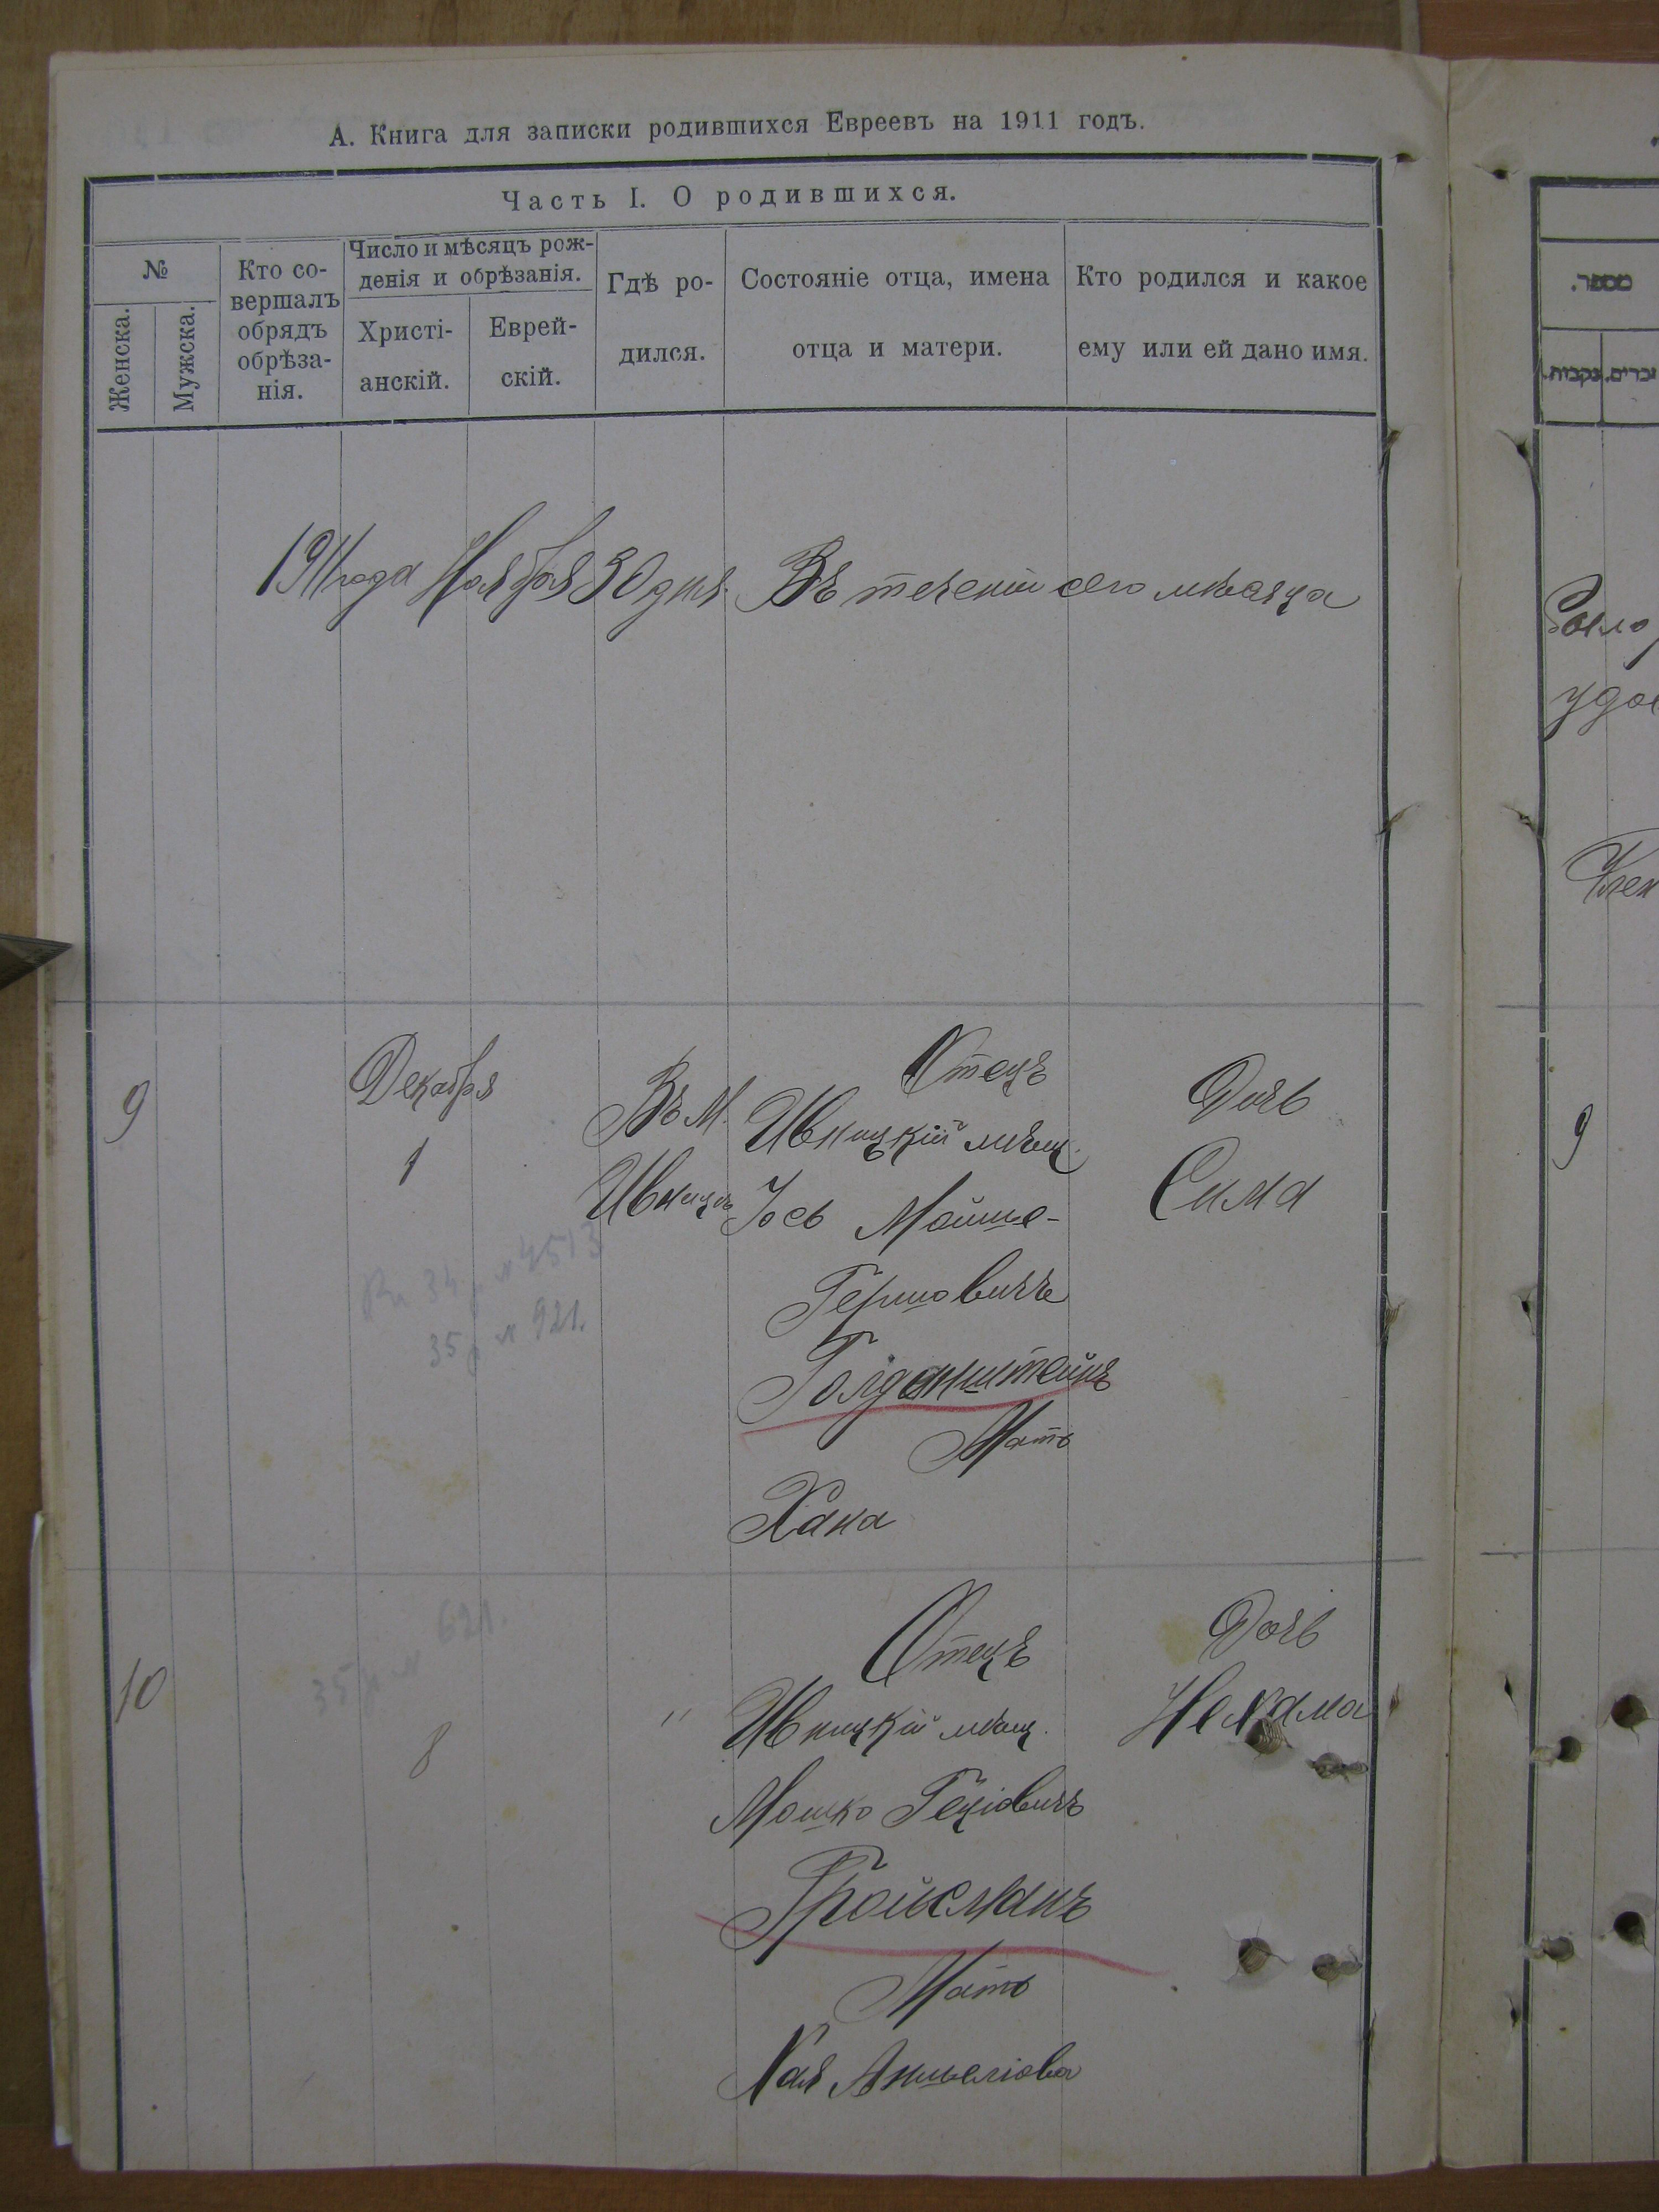 А. Книга для записки родившихся Евреевъ на 1911 годъ.
Часть I. О родившихся.
№
Женска.
Мужска.
Кто со-
вершалъ
обрядъ
обрѣза-
нія.
Число и мѣсяцъ рож-
денія и обрѣзанія.
Христі-
анскій.
Еврей-
скій.
Гдѣ ро-
дился.
Состояніе отца, имена
отца и матери.
Кто родился и какое
ему или ей дано имя.
1911 года Ноября 30 дня. Въ теченіи сего мѣсяца
9
Декабря
1
Въ М.
Ивницѣ
Отецъ
Ивницкій мѣщ.
Іось Мойше-
Гершовичъ
Голденштейнъ
Мать
Хана
Дочь
Сима
34 № 4513
35 № 921.
10
35 № 621.
8
"
Отецъ
Ивницкій мѣщ.
Мошко Геціовичъ
Гройсманъ
Мать
Хая Аншелiова
Дочь
Нехама
מספר.
נקבות.
זכרים.
9